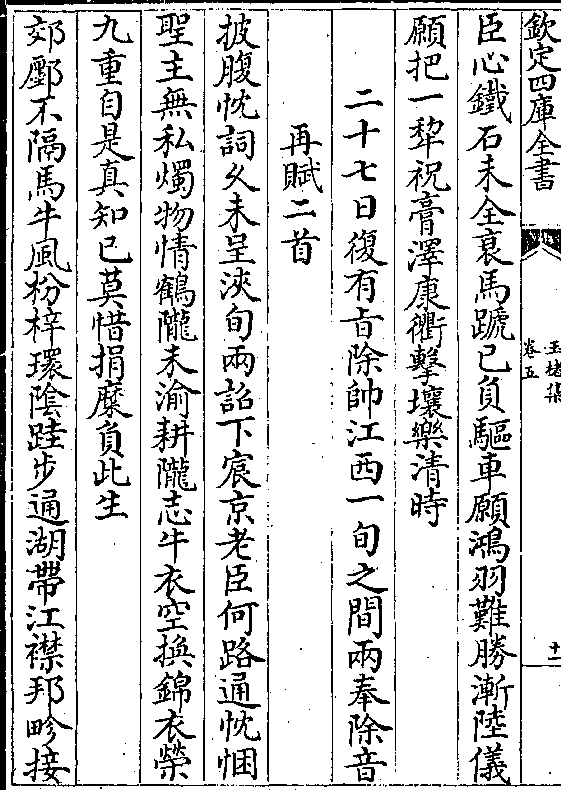 欽定四庫全書
玉楮集
卷五
十一
臣心鐵石未全衰馬蹏已負驅車願鴻羽難勝漸陸儀
願把一犂祝膏澤康衢擊壤樂清時
二十七日復有旨除帥江西一旬之間兩奉除音
再賦二首
披腹忱詞久未呈浹旬兩詔下宸京老臣何路通忱悃
聖主無私燭物情鶴隴未渝耕隴志牛衣空換錦衣榮
九重自是真知己莫惜捐糜負此生
郊鄽不隔馬牛風枌梓環陰跬步通湖帶江襟邦畛接